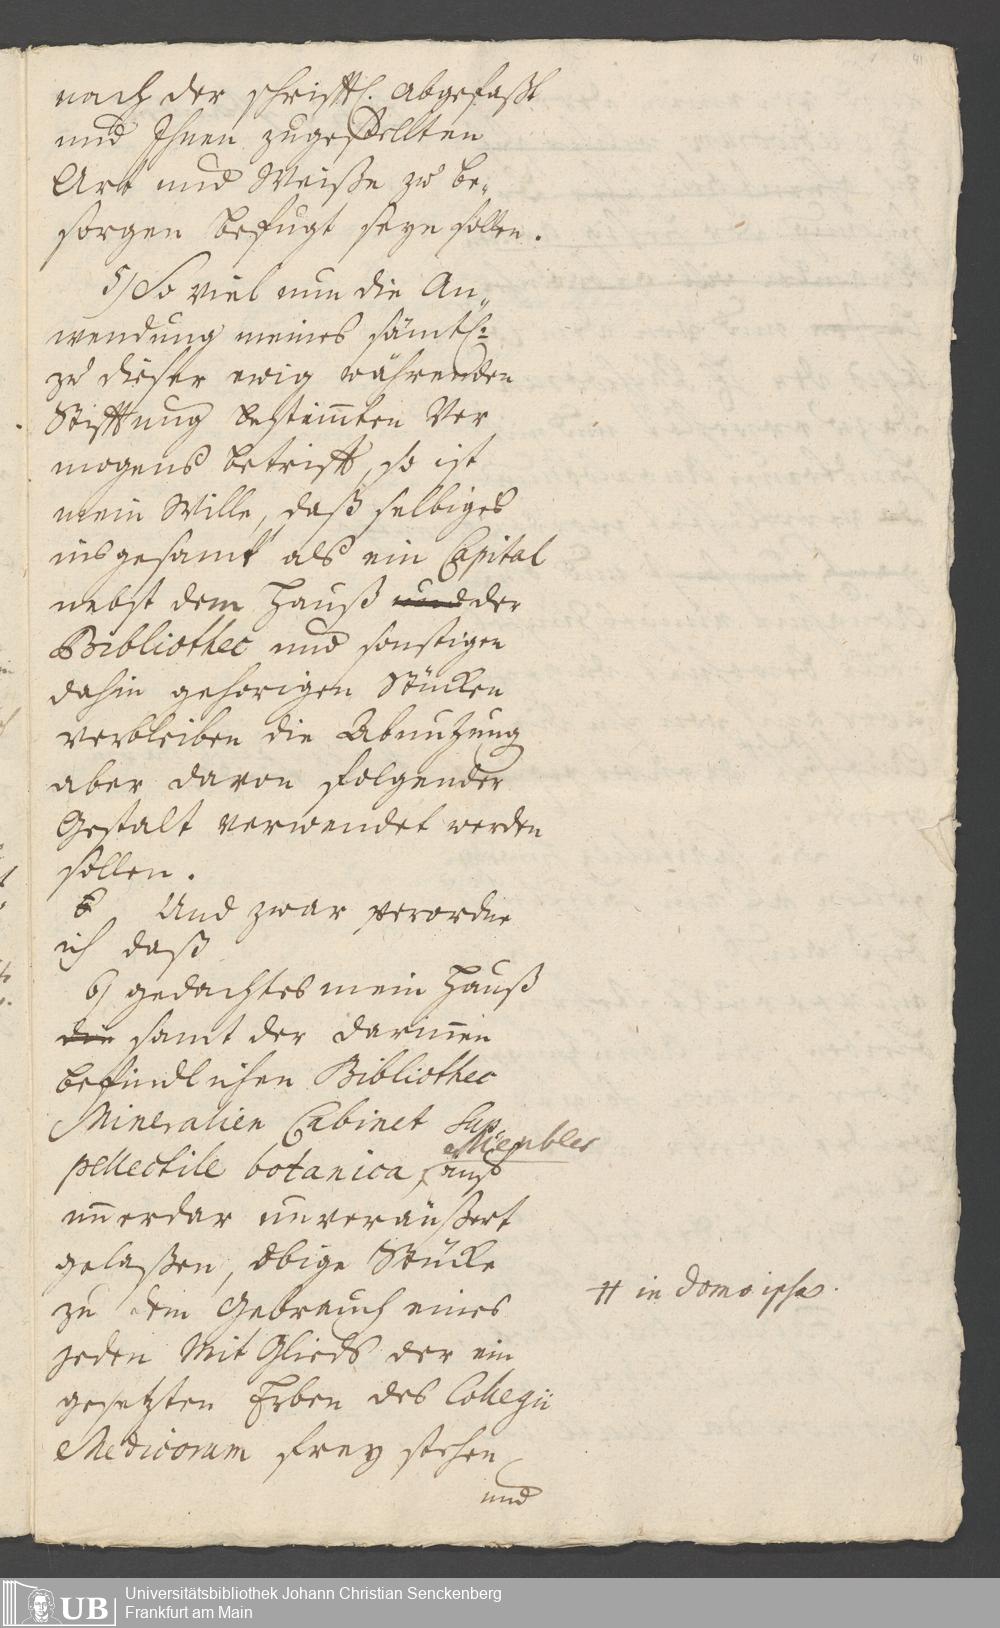 41
nach der schrifftl. abgefaßt
und Ihnen zugestellten
Art und Weiße zu be„
sorgen befugt seyn sollen.
5/ So viel nun die An„
wendung meines sämtl:
zu dieser ewig währenden
Stifftung bestim̅ten Ver
mogens betrifft, so ist
mein Wille, daß selbiges
insgesamt als ein Capital
nebst dem Hauß und der
Bibliothec und sonstigen
dahin gehorigen Stücken
verbleiben die Abnutzung
aber davon folgender
Gestalt verwendet werden
sollen.
6 Und zwar verordne
ich daß
6/ gedachtes mein Hauß
die samt der darin̅en
befindlichen Bibliothec
Mineralien Cabinet Sup
Meubles
pellectile botanica,
im̅erdar unveräußert
gelaßen, obige Stücke
zu dem Gebrauch eines
# in domo ipsa.
jeden Mit Glieds der ein
gesetzten Erben des Collegii
Medicorum frey stehen
und
UB
Universitätsbibliothek Johann Christian Senckenberg
Frankfurt am Main